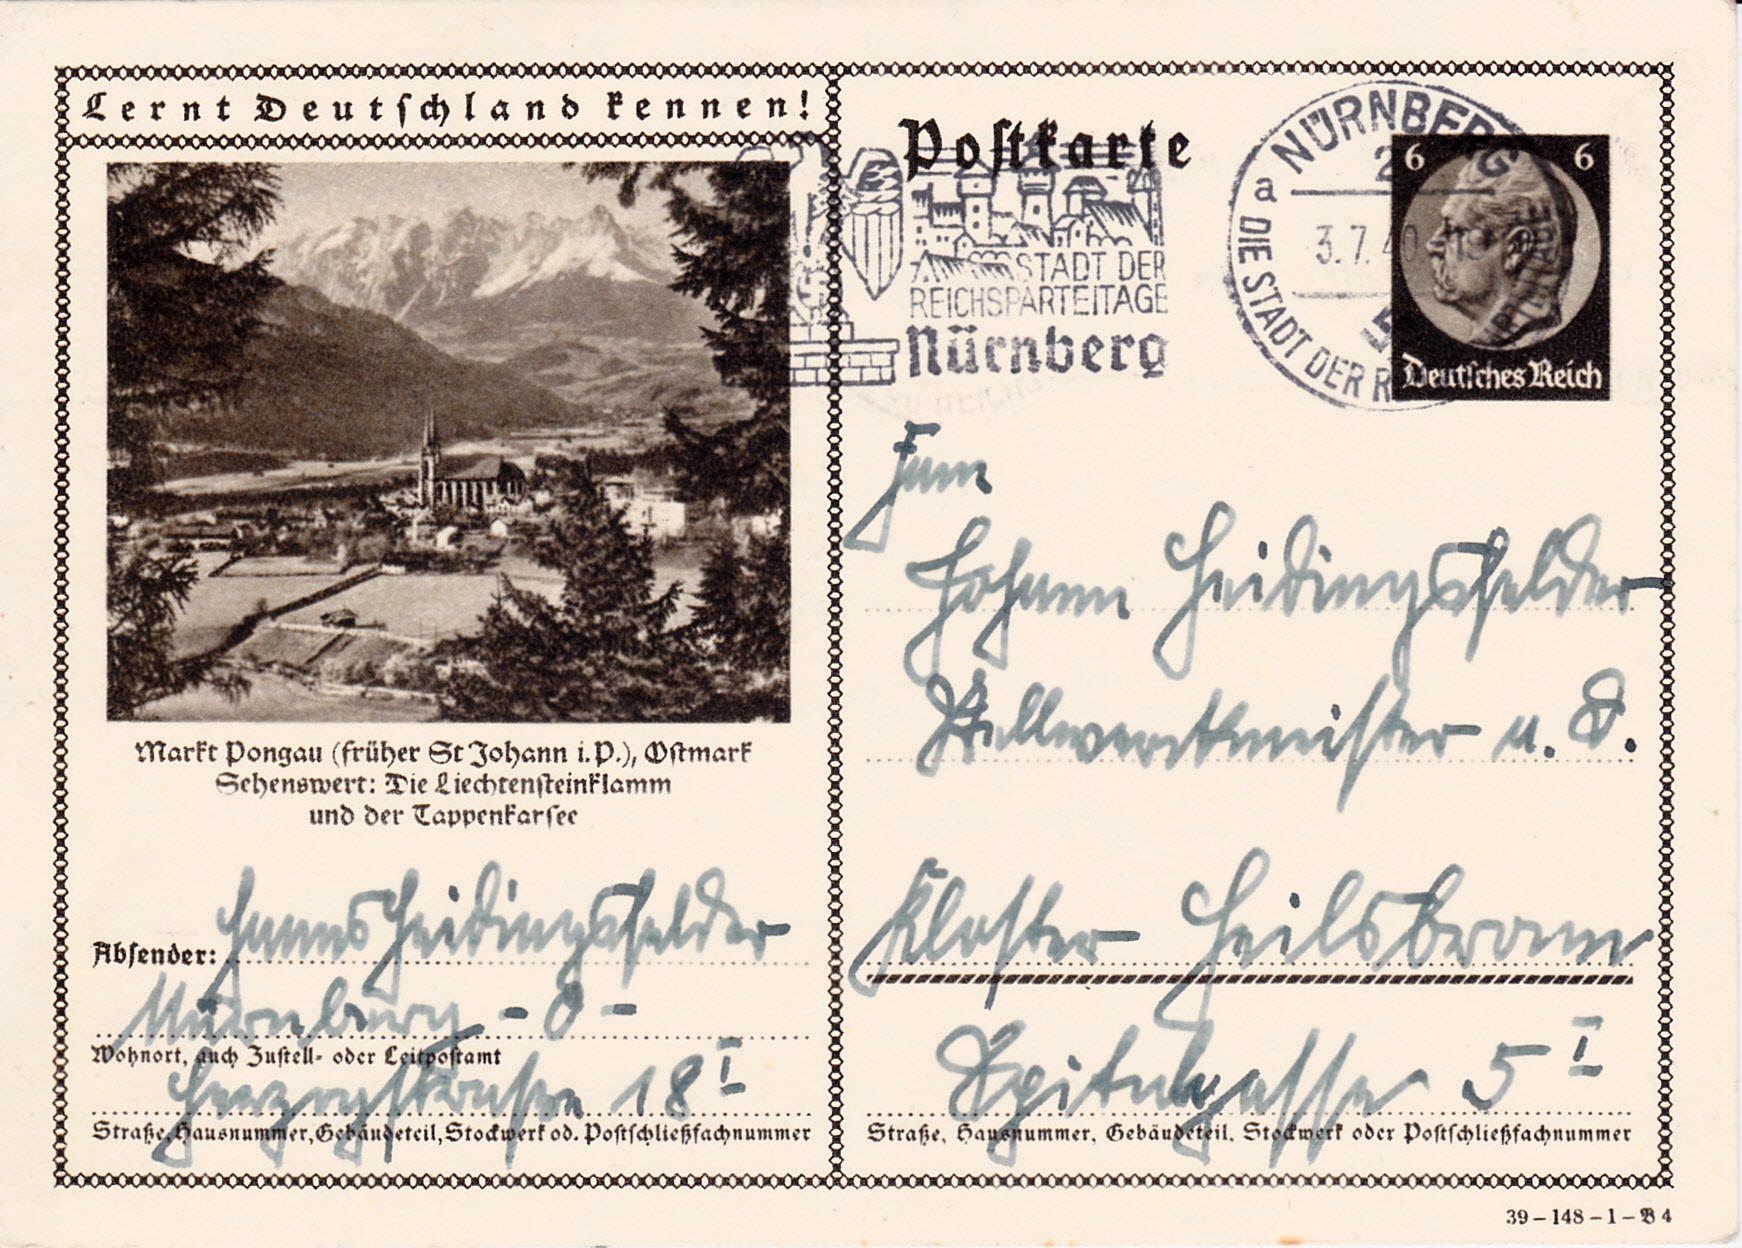 Lernt Deutschland kennen!
Markt Pongau (früher St Johann i. P.), Ostmark
Sehenswert: Die Liechtensteinklamm
und der Tappenkarsee
Absender: Hanns Heidingsfelder
Nürnberg - O -
Wohnort, auch Zustell- oder Leitpostamt
Herzogstrasse 18 I
Straße, Hausnummer, Gebäudeteil, Stockwerk od. Postschließfachnummer
Postkarte
STADT DER
REICHSPARTEITAGE
Nürnberg
NÜRNBERG
2
a
3.7.40
DIE STADT DER R
6 6
Deutsches Reich
Johann Heidingsfelder
Stellwerkmeister a. D.
Kloster Heilsbronn
Spitalgasse 5 I
Straße, Hausnummer, Gebäudeteil, Stockwerk oder Postschließfachnummer
39-148-1-B 4